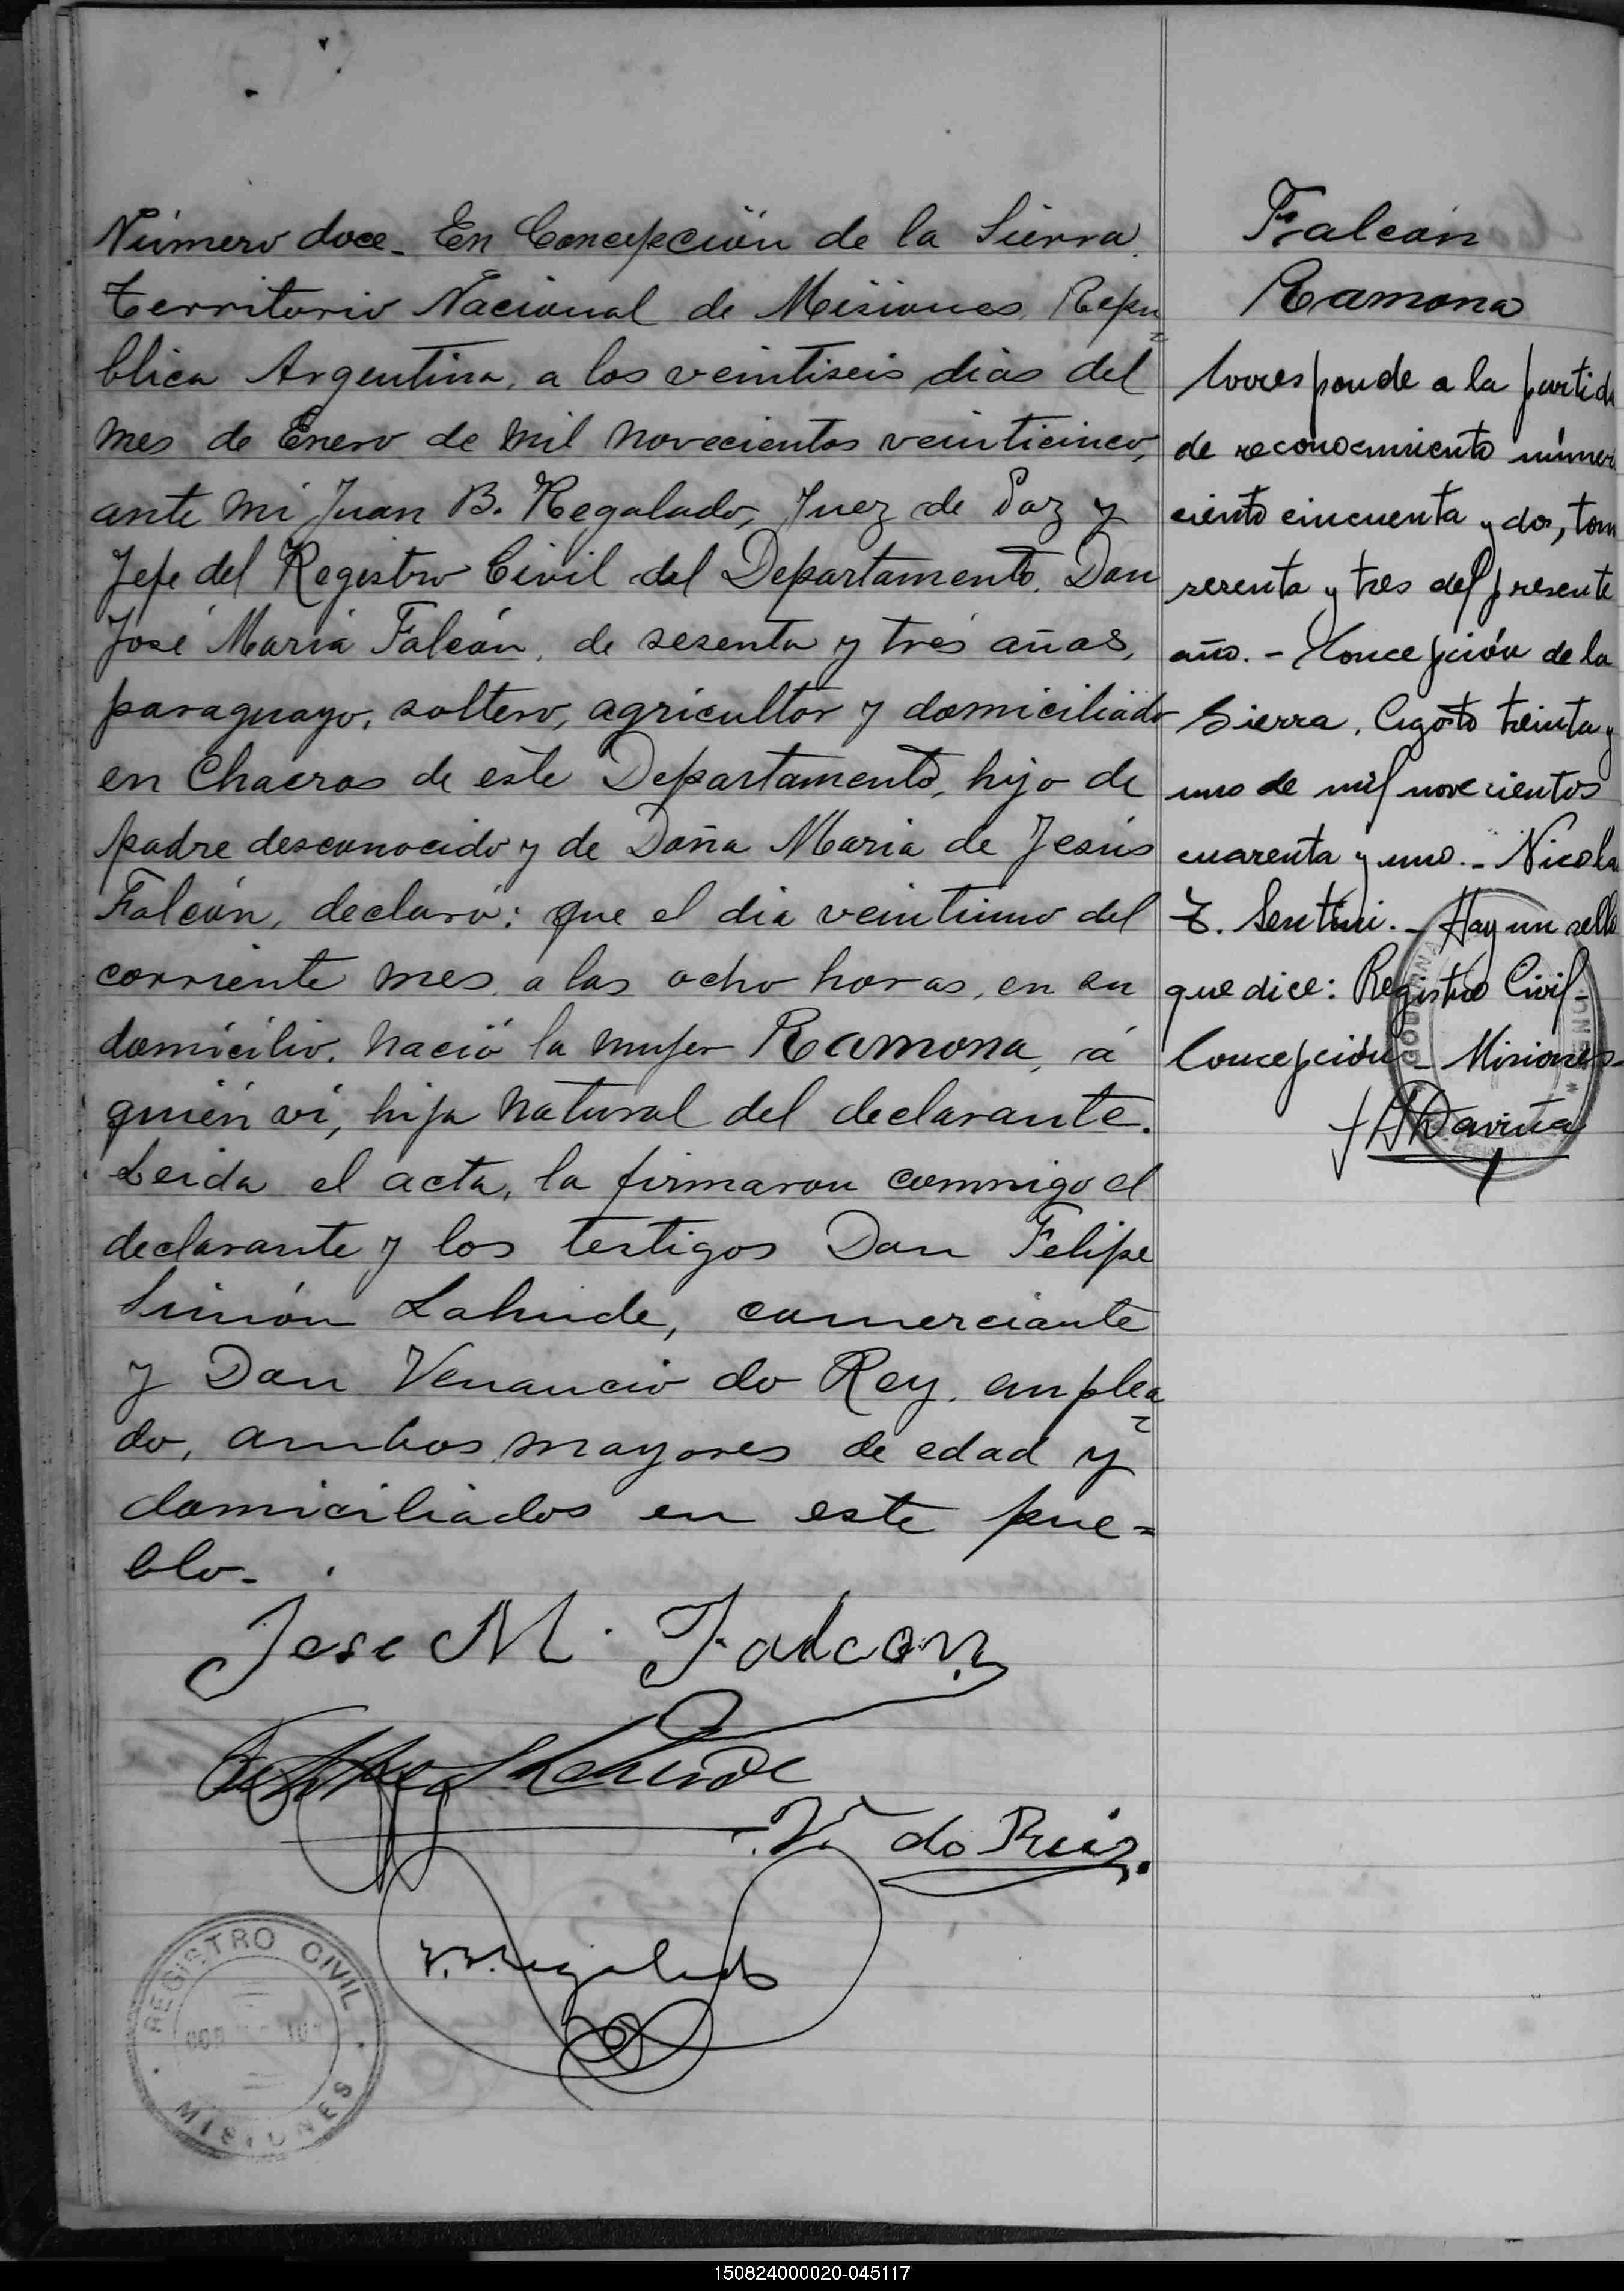 Número doce. En Concepción de la Sierra,
territorio Nacional de Misiones, Repu=
blica Argentina, a los veintiseis dias del
mes de Enero de mil novecientos veinticinco,
ante mi Juan B. Regalado, Juez de Paz y
Jefe del Registro Civil del Departamento, Don
José Maria Falcón, de sesenta y tres años,
paraguayo, soltero, agricultor y domiciliado
en Chacras de este Departamento, hijo de
padre desconocido y de Doña Maria de Jesús
Falcón, declaró: que el dia veintiuno del
corriente mes, a las ocho horas, en su
domicilio, nació la mujer Ramona, á
quién vi, hija natural del declarante.
Leida el acta, la firmaron conmigo el
declarante y los testigos Don Felipe
Simón Lahude, comerciante
y Don Venancio do Rey, emplea=
do, ambos mayores de edad y
domiciliados en este pue=
blo.
Jose M. Falcon
V. do Reis.
REGISTRO CIVIL
MISIONES
Falcón
Ramona
Corresponde a la partida
de reconocimiento número
ciento cincuenta y dos, tomo
sesenta y tres del presente
año. - Concepción de la
Sierra, Agosto treinta y
uno de mil novecientos
cuarenta y uno. - Nicola
Z. Sentini. - Hay un sello
que dice: Registro Civil -
Concepción - Misiones -
150824000020-045117